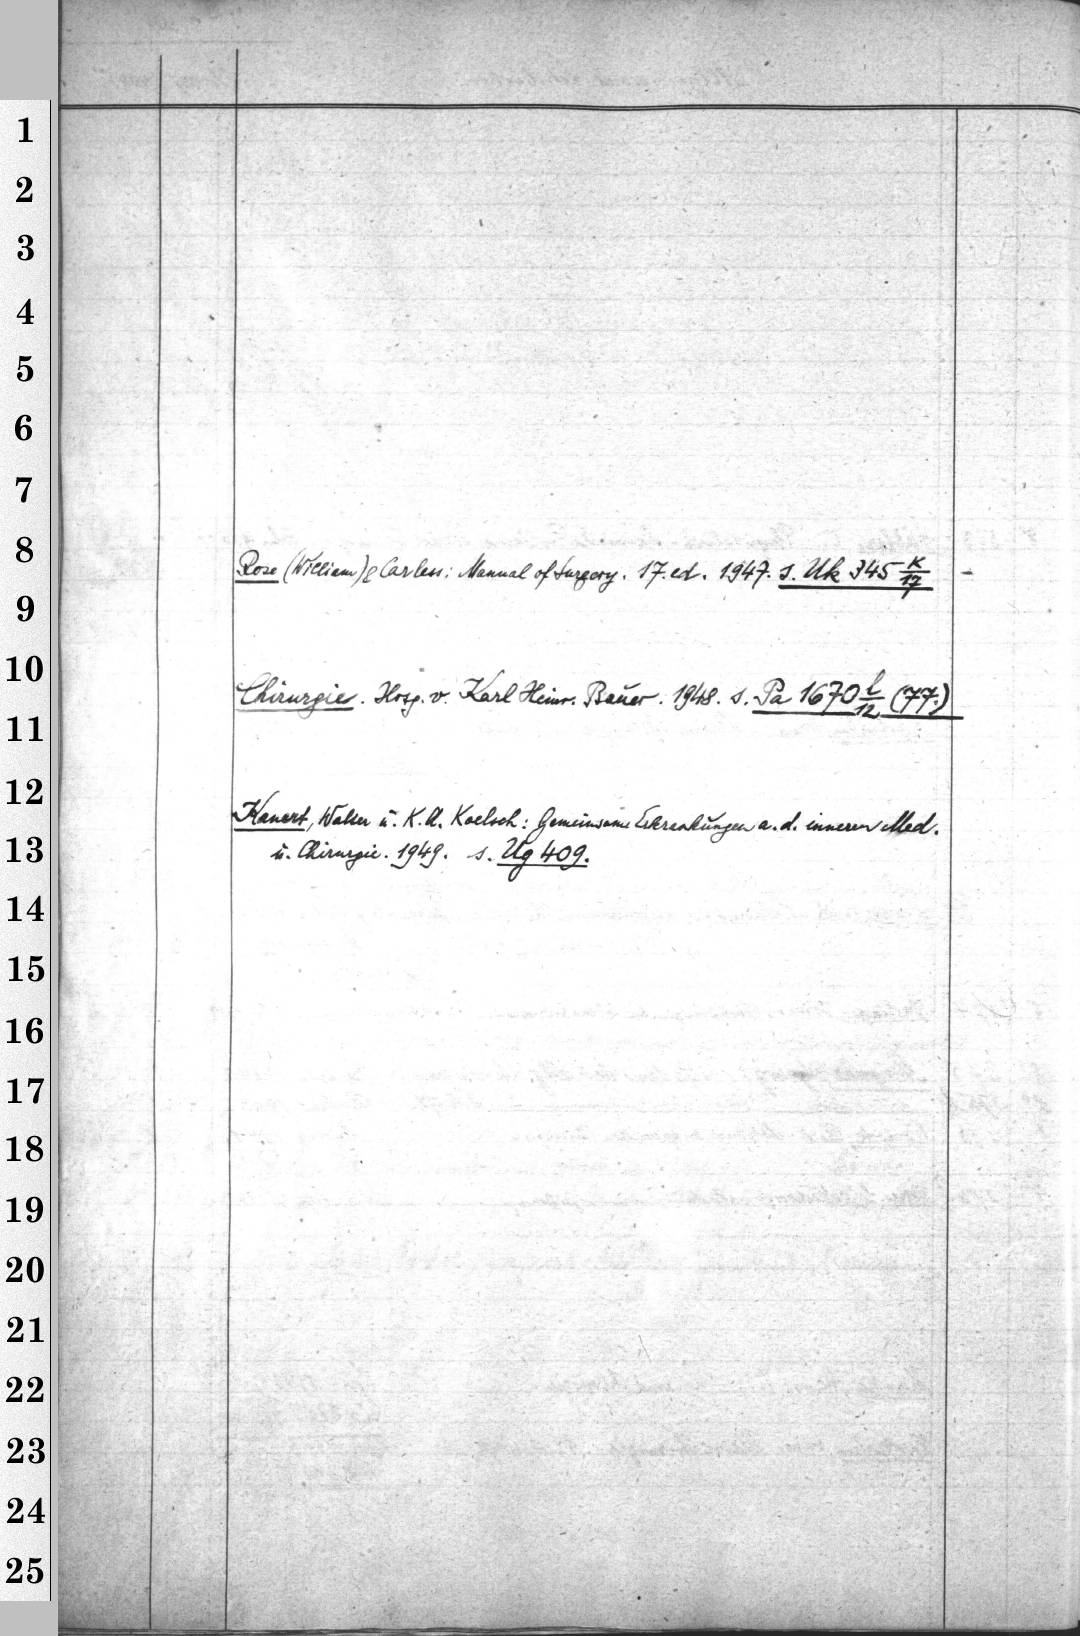 1
2
3
4
5
6
7
8
Rose (William) & Carless: Manual of Surgery. 17. ed. 1947. s. Uk 345 K/17 -
9
10
Chirurgie. Hrsg. v. Karl Heinr. Bauer. 1948. s. Pa 1670 l/12 (77.)
11
12
Kanert, Walter u. K. A. Koelsch: Gemeinsame Erkrankungen a. d. inneren Med.
13
u. Chirurgie. 1949. s. Ug 409.
14
15
16
17
18
19
20
21
22
23
24
25